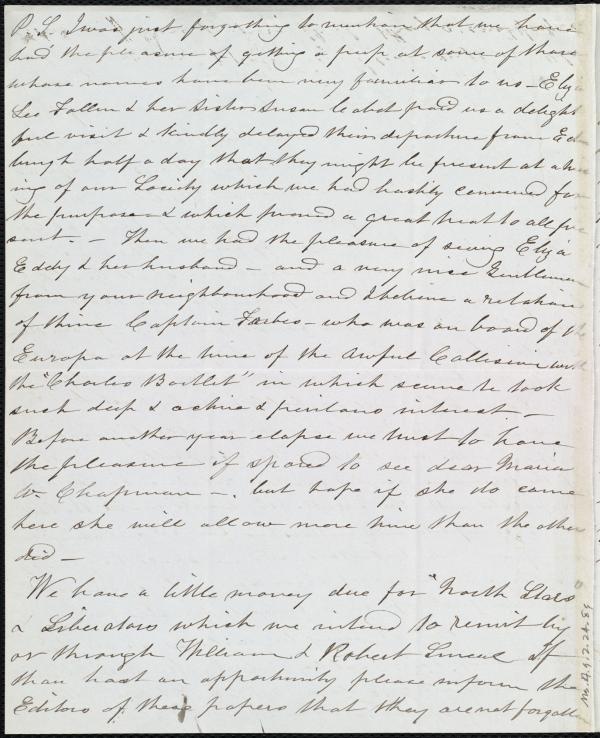 P.S. I was just forgetting to mention that we have
had the pleasure of getting a peep at some of those
whose names have been very familiar to us – Eliza
Lee Follen & her sister Susan Cabot paid us a delight
ful visit & kindly delayed their departure from Edin
burgh half a day that they might be present at a
ing of our Society which we had hastily convened for
the purpose & which proved a great treat to all pre
sent. – Then we had the pleasure of seeing Eliza
Eddy & her husband – and a very nice Gentleman
from your neighbourhood and I believe a relation
of thine Captain Forbes – who was on board of the
Europa at the time of the awful Collision with
the "Charles Bartlet" in which scene he took
such deep & active & interest. –
Before another year elapse we trust to have
the pleasure if spared to see dear Maria
W Chapman – . but hope if she do come
here she will allow more time than the other
did –
We have a little money due for "North Stars"
& Liberators which we intend to remit by
or through William & Robert Smeal If
thou hast an opportunity please inform the
Editors of these papers that they are not forgotten
Ms.A.9.2.24.89